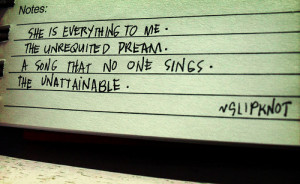 Notes:
SHE IS EVERYTHING TO ME.
THE UNREQUITED DREAM.
A SONG THAT NO ONE SINGS.
THE UNATTAINABLE.
~SLIPKNOT